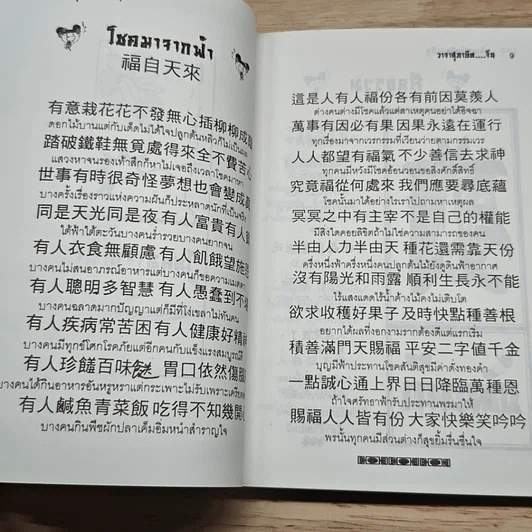 โชคมาจากฟ้า
福自天來
有意栽花花不發無心插柳柳成
ดอกไม้บานแต่กับเด็ดไม่ได้ใจปลูกต้นหลิวก็ไม่เป็น
踏破鐵鞋無覓處得來全不費苦心
แสวงหาจนรองเท้าสึกก็หาไม่เจอถึงเวลาโชคมาหา
世事有時很奇怪夢想也會變成
บางครั้งเรื่องราวแห่งความฝันก็ประหลาดนักที่เป็นจริง
同是天光同是夜有人富貴有人
ใต้ฟ้าใต้ตะวันบางคนร่ำรวยบางคนยากจน
有人衣食無顧慮有人飢餓望施
บางคนไม่สนอาภรณ์อาหารแต่บางคนก็ขอความเมตตา
有人聰明多智慧有人愚蠢到不
บางคนฉลาดมากปัญญาแต่ก็มีที่โง่เขลาไม่ทันคน
有人疾病常苦困有人健康好精
บางคนมีทุกข์โศกโรคภัยแต่อีกคนกับแข็งแรงสมบูรณ์ดี
有人珍饈百味 胃口依然傷腦
บางคนได้กินอาหารอันหรูหราแต่กระเพาะไม่รับเพราะเครียด
有人鹹魚青菜飯 吃得不知幾開
บางคนกินพืชผักปลาเค็มอิ่มหนำสำราญใจ
วาจาสุภาษิต.....จีน 9
這是人有人福份各有前因莫羨人
ต่างคนต่างมีโชคแล้วแต่สาเหตุของคนอย่าได้อิจฉา
萬事有因必有果因果永遠在運行
ทุกเรื่องมาจากเวรกรรมที่เวียนว่ายตามกรรมเวร
人人都望有福氣不少善信去求神
ทุกคนมีหวังมีโชคอ้อนวอนขอสิ่งศักดิ์สิทธิ์
究竟福從何處來我們應要尋底蘊
โชคนั้นมาได้อย่างไรเราไปถามหาเหตุผล
冥冥之中有主宰不是自己的權能
มีสิ่งใดคอยลิขิตถ้าไม่ใช่ความสามารถของคน
半由人力半由天 種花還需靠天份
ครึ่งหนึ่งฟ้าครึ่งหนึ่งคนปลูกต้นไม้ยังดูดินฟ้าอากาศ
沒有陽光和雨露 順利生長永不能
ไร้แสงแดดไร้น้ำค้างไม้คงไม่เติบโต
欲求收穫好果子及時快點種善根
อยากได้ผลที่งอกงามรากต้องดีแต่แรกเริ่ม
積善滿門天賜福 平安二字値千金
บุญมีฟ้าประทานโชคสันติสุขมีค่าดั่งทองคำ
一點誠心通上界日日降臨萬種恩
ถ้าใจศรัทธาฟ้ารับประทานพรมาให้
賜福人人皆有份 大家快樂笑吟吟
พรนั้นทุกคนมีส่วนต่างก็สุขยิ้มรื่นชื่นใจ